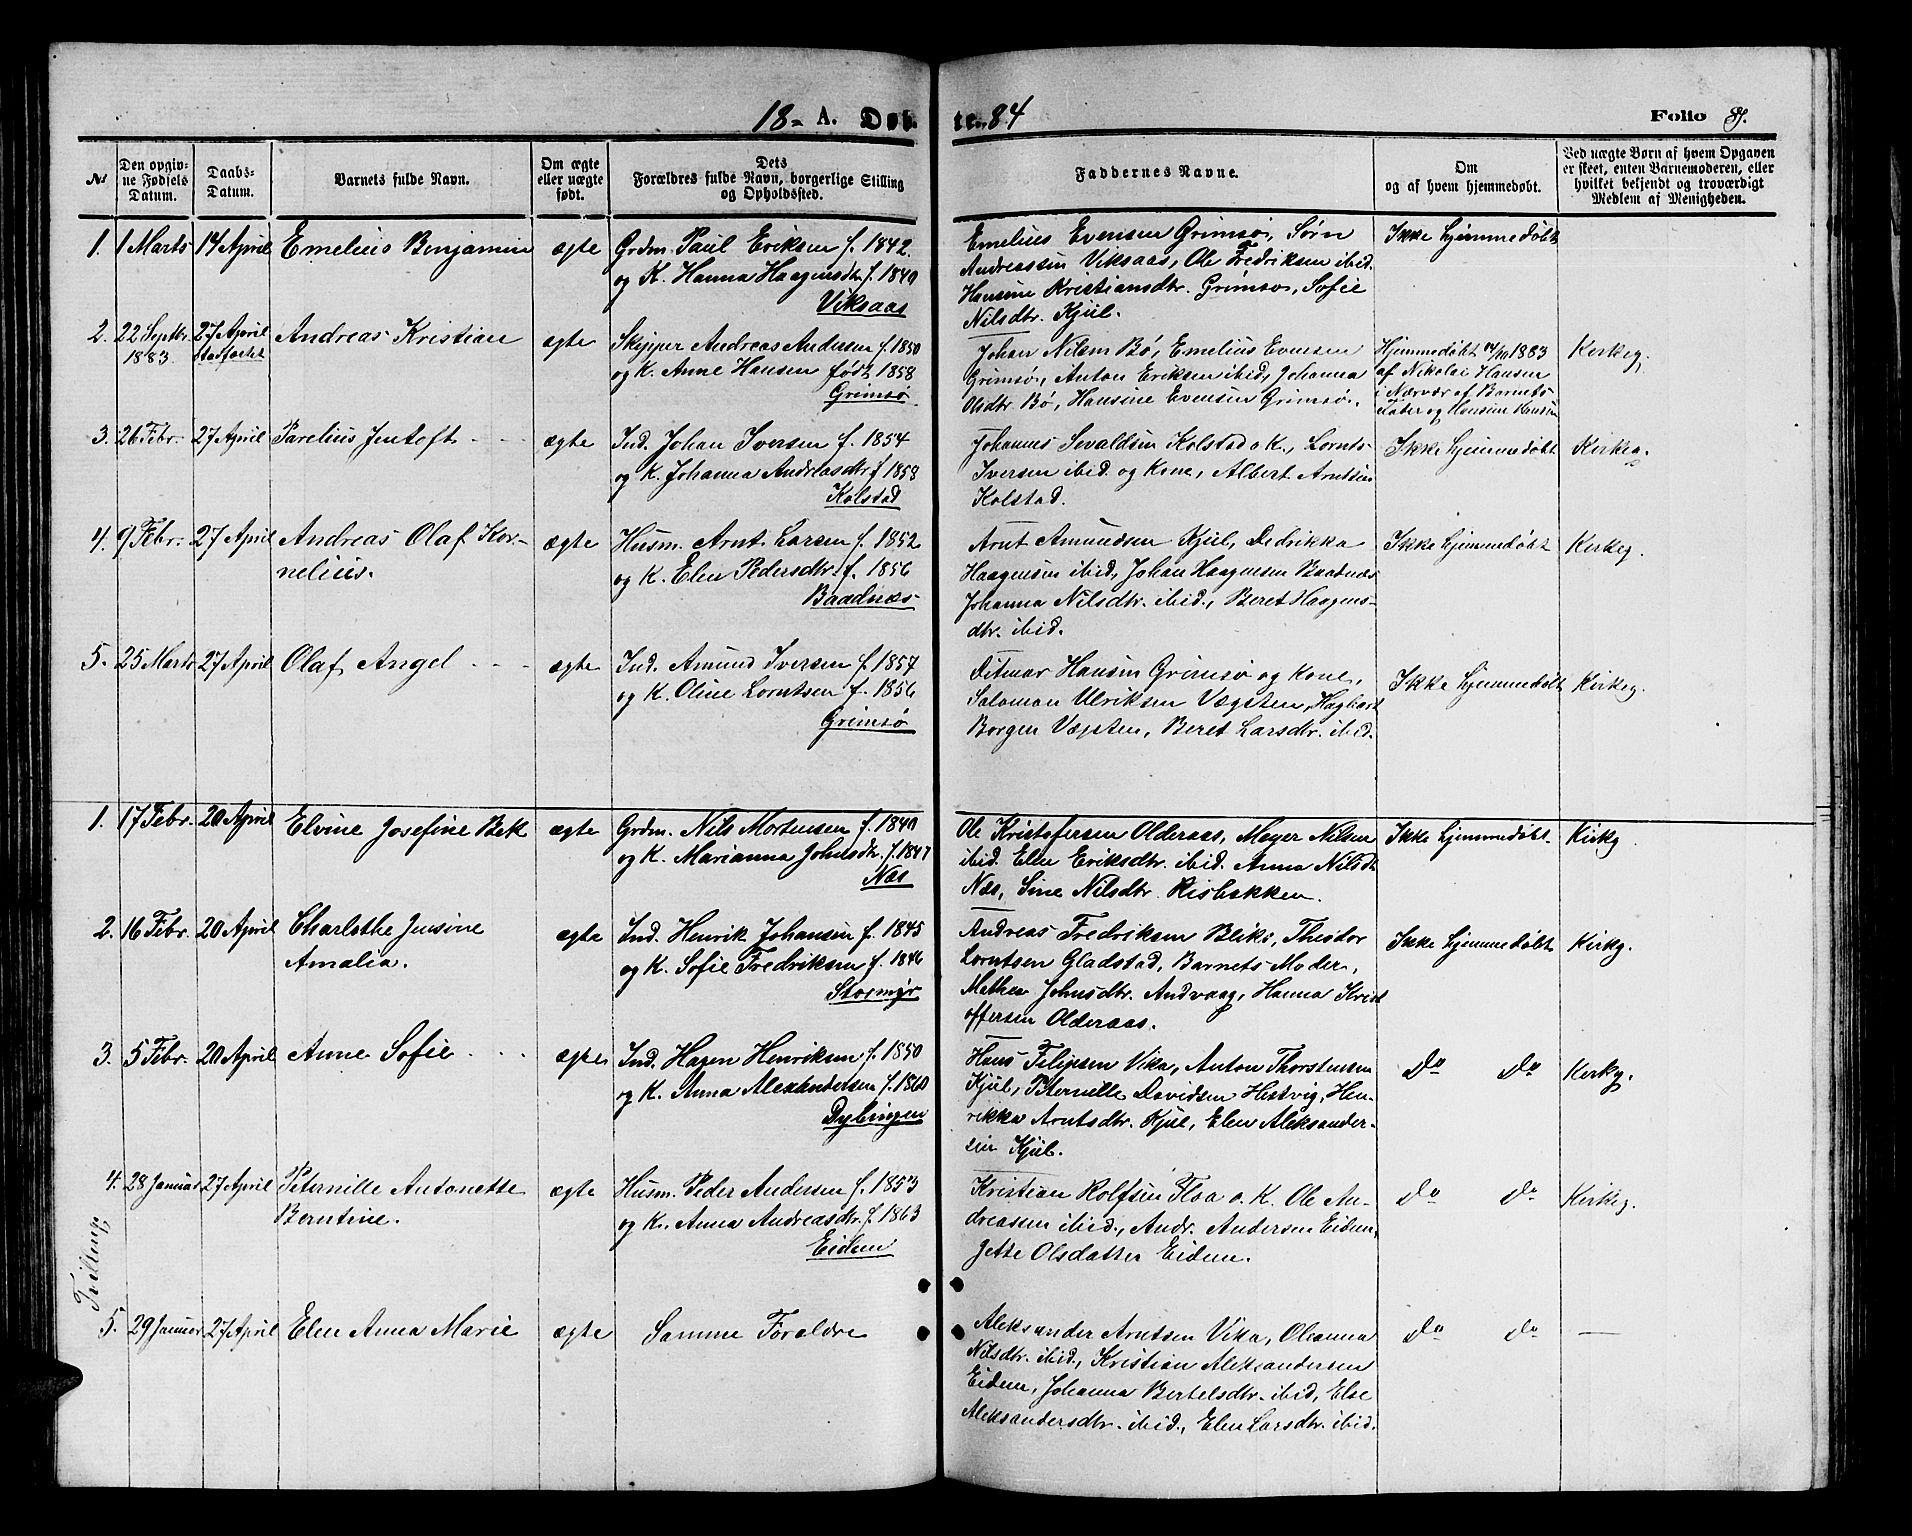 18- A. Døb- te. 84
Folio 8.
No
Den opgiv-
ne Fødsels
Datum.
Daabs-
Datum.
Barnets fulde Navn.
Om ægte
eller uægte
født.
Dets
Forældres fulde Navn, borgerlige Stilling
og Opholdssted.
Faddernes Navne.
Om
og af hvem hjemmedøbt.
Ved uægte Børn af hvem Opgaven
er skeet, enten Barnemoderen, eller
hvilket bekjendt og troværdigt
Medlem af Menigheden.
1. 1 Marts 14 April Emelius Benjamin ægte Grdm. Paul Eriksen f. 1842.
og K. Hanna Haagensdtr f. 1840
Viksaas
Emelius Evensen Grimsø, Sørn
Andreassen Viksaas, Ole Fredriksen ibid.
Hansine Kristiansdtr. Grimsø, Sofie
Nilsdtr. Kjul.
Ikke hjemmedøbt
2. 22 Septbr. 1883. 27 April
stadfæstet
Andreas Kristian ægte Skipper Andreas Andersen f. 1850
og K. Anne Hansen født 1858
Grimsø
Johan Nilsen Bø, Emelius Evensen
Grimsø, Anton Eriksen ibid, Johanna
Olsdtr. Bø, Hansine Evensen Grimsø.
Hjemmedøbt 14/10 1883
af Nikolai Hansen
i Nærvær af Barnets
Fader og Hansine Hansen
Kirkeg.
3. 26 Febr. 27 April Parelius Jentoft - - - ægte Ind. Johan Iversen f. 1854
og K. Johanna Andreasdtr f 1858
Kolstad
Johannes Sevaldsen Kolstad o K., Lornts
Iversen ibid. og Kone, Albert Arntsen
Kolstad.
Ikke hjemmedøbt Kirkeg.
4. 9 Febr. 27 April Andreas Olaf Kor-
nelius. ægte Husm. Arnt Larsen f. 1852
og K. Elen Pedersdtr. f. 1856
Baadnæs
Arnt Amundsen Kjul, Dedrikka
Haagensen ibid, Johan Haagensen Baadnæs
Johanna Nilsdtr. ibid., Beret Haagens-
dtr. ibid.
Ikke hjemmedøbt Kirkeg.
5. 25 Marts 27 April Olaf Angel - - - ægte Ind. Amund Iversen f. 1857
og K. Oline Lorntsen f. 1856
Grimsø
Ditmar Hansen Grimsø og Kone,
Salomon Ulriksen Vægsten, Hagbart
Borgen Vægsten, Beret Larsdtr. ibid.
Ikke hjemmedøbt Kirkeg.
1. 17 Febr. 20 April Elvine Josefine Bek ægte Grdm. Nils Mortensen f. 1840
og K. Marianna Johnsdtr. f. 1847
Næs
Ole Kristofersen Olderaas, Meyer Nilsen
ibid. Ellen Eriksdtr. ibid. Anna Nilsdtr
Næs, Sine Nilsdtr. Risbakken.
Ikke hjemmedøbt. Kirkg
2. 16 Febr. 20 April Charlothe Jensine
Amalia. ægte Ind. Henrik Johansen f. 1845
og K. Sofie Fredriksen f. 1846
Stormyr
Andreas Fredriksen Bliks, Theodor
Lorntsen Gladstad, Barnets Moder,
Mathea Johnsdtr. Andvaag, Hanna Krist
offersen Olderaas.
Ikke hjemmedøbt Kirkg.
3. 5 Febr. 20 April Anne Sofie - - - ægte Ind. Hagen Henriksen f. 1850
og K. Anna Alexandersen f. 1860
Dybingen
Hans Filipsen Vika, Anton Thorstensen
Kjul, Pternille Davidsen Hestvig, Hen-
rikka Arntsdtr. Kjul, Elen Aleksander-
sen Kjul.
do do Kirkg.
Tvilling
4. 28 Januar 27 April Peternille Antonette
Berntine. ægte Husm. Peder Andersen f. 1853
og K. Anna Andreasdtr. f. 1863
Eidem
Kristian Rolfsen Floa o. K. Ole An-
dreassen ibid., Andr. Andersen Eidem,
Jette Olsdatter Eidem.
do do Kirkeg.
5. 29 Januar 27 April Elen Anna Marie ægte Samme Forældre
Aleksander Arntsen Vika, Oleanna
Nilsdtr. ibid., Kristian Aleksandersen
Eidem, Johanna Bertelsdtr. ibid, Else
Aleksandersdtr. ibid., Elen Larsdtr. ibid.
do do —